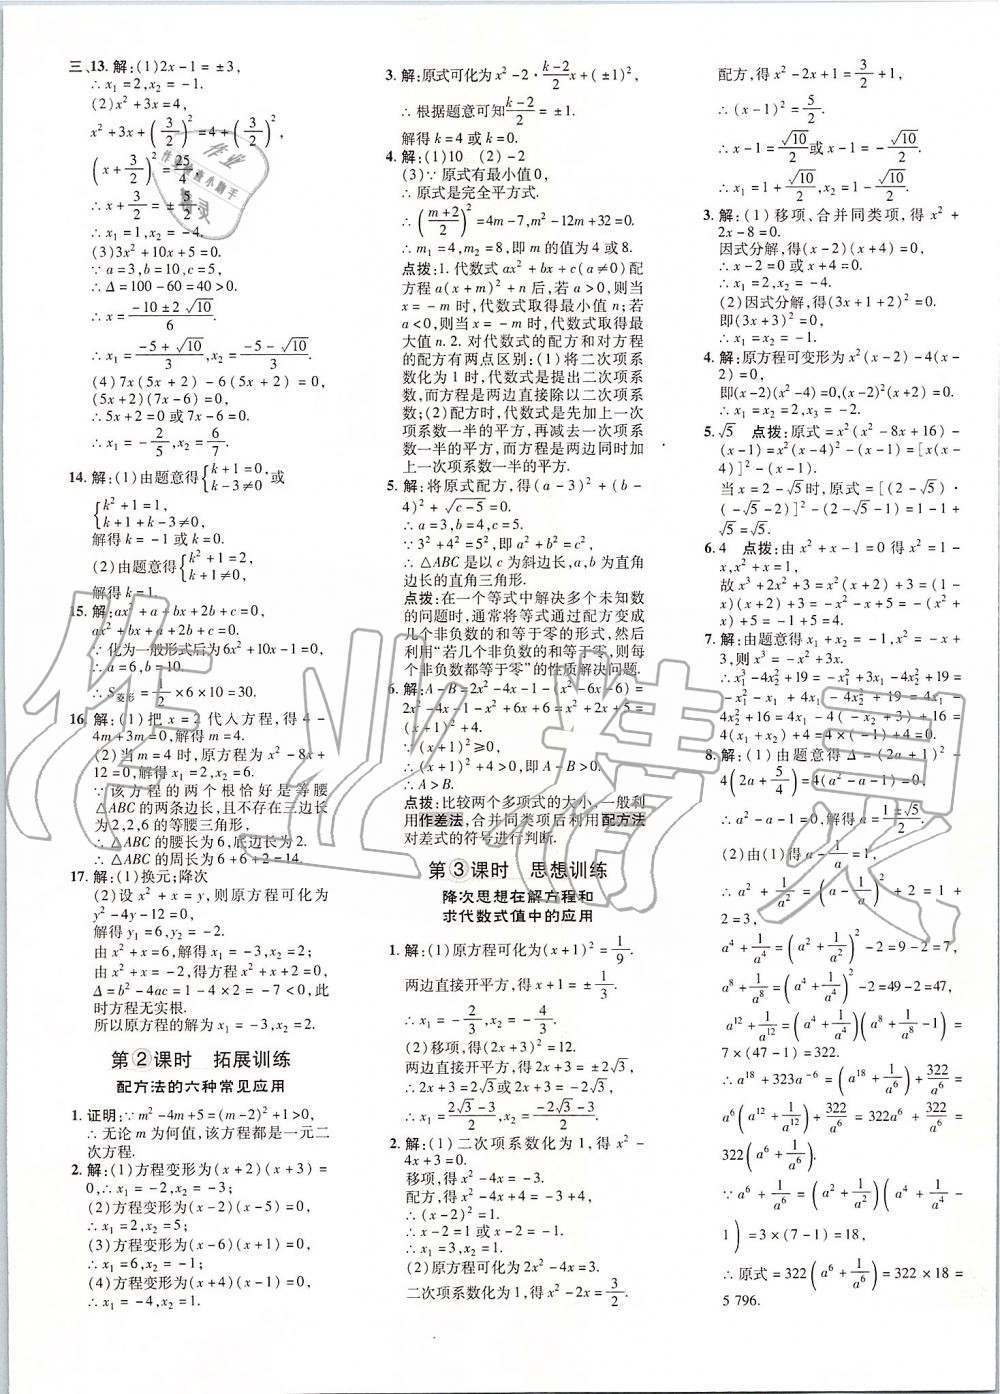 三、13. 解:(1)2x-1=±3,
∴x₁=2,x₂=-1.
(2)x²+3x=4,
x²+3x+(3/2)²=4+(3/2)²,
(x+3/2)²=25/4,
∴x+3/2=±5/2.
∴x₁=1,x₂=-4.
(3)3x²+10x+5=0.
∵a=3,b=10,c=5,
∴Δ=100-60=40>0.
∴x=(-10±2√10)/6.
∴x₁=(-5+√10)/3,x₂=(-5-√10)/3.
(4)7x(5x+2)-6(5x+2)=0,
(5x+2)(7x-6)=0,
∴5x+2=0或7x-6=0.
∴x₁=-2/5,x₂=6/7.
14. 解:(1)由题意得{k+1=0, k-3≠0或
{k²+1=1, k+1+k-3≠0,
解得k=-1或k=0.
(2)由题意得{k²+1=2, k+1≠0,
解得k=1.
15. 解:ax²+a+bx+2b+c=0,
ax²+bx+a+2b+c=0.
∵化为一般形式后为6x²+10x-1=0,
∴a=6,b=10.
∴S菱形=1/2×6×10=30.
16. 解:(1)把x=2代入方程,得4-
4m+3m=0,解得m=4.
(2)当m=4时,原方程为x²-8x+
12=0,解得x₁=2,x₂=6.
∵该方程的两个根恰好是等腰
△ABC的两条边长,且不存在三边长
为2,2,6的等腰三角形,
∴△ABC的腰长为6,底边长为2.
∴△ABC的周长为6+6+2=14.
17. 解:(1)换元;降次
(2)设x²+x=y,原方程可化为
y²-4y-12=0,
解得y₁=6,y₂=-2.
由x²+x=6,得x₁=-3,x₂=2.
由x²+x=-2,得方程x²+x+2=0,
Δ=b²-4ac=1-4×2=-7<0,此
时方程无实根.
所以原方程的解为x₁=-3,x₂=2.
第②课时 拓展训练
配方法的六种常见应用
1. 证明:∵m²-4m+5=(m-2)²+1>0,
∴无论m为何值,该方程都是一元二
次方程.
2. 解:(1)方程变形为(x+2)(x+3)=
0,∴x₁=-2,x₂=-3;
(2)方程变形为(x-2)(x-5)=0,
∴x₁=2,x₂=5;
(3)方程变形为(x-6)(x+1)=0,
∴x₁=6,x₂=-1;
(4)方程变形为(x+4)(x-1)=0,
∴x₁=-4,x₂=1.
3. 解:原式可化为x²-2·(k-2)/2 x+(±1)²,
∴根据题意可知(k-2)/2=±1.
解得k=4或k=0.
4. 解:(1)10 (2)-2
(3)∵原式有最小值0,
∴原式是完全平方式.
∴((m+2)/2)²=4m-7,m²-12m+32=0.
∴m₁=4,m₂=8,即m的值为4或8.
点拨:1. 代数式ax²+bx+c(a≠0)配
方程a(x+m)²+n后,若a>0,则当
x=-m时,代数式取得最小值n;若
a<0,则当x=-m时,代数式取得最
大值n. 2. 对代数式的配方和对方程
的配方有两点区别:(1)将二次项系
数化为1时,代数式是提出二次项系
数,而方程是两边直接除以二次项系
数;(2)配方时,代数式是先加上一次
项系数一半的平方,再减去一次项系
数一半的平方,而方程是两边同时加
上一次项系数一半的平方.
5. 解:将原式配方,得(a-3)²+(b-
4)²+√(c-5)=0.
∴a=3,b=4,c=5.
∵3²+4²=5²,即a²+b²=c²,
∴△ABC是以c为斜边长,a,b为直角
边长的直角三角形.
点拨:在一个等式中解决多个未知数
的问题时,通常将等式通过配方变成
几个非负数的和等于零的形式,然后
利用“若几个非负数的和等于零,则每
个非负数都等于零”的性质解决问题.
6. 解:A-B=2x²-4x-1-(x²-6x-6)=
2x²-4x-1-x²+6x+6=x²+2x+5=
(x+1)²+4.
∵(x+1)²≥0,
∴(x+1)²+4>0,即A-B>0.
∴A>B.
点拨:比较两个多项式的大小,一般利
用作差法,合并同类项后利用配方法
对差式的符号进行判断.
第③课时 思想训练
降次思想在解方程和
求代数式值中的应用
1. 解:(1)原方程可化为(x+1)²=1/9.
两边直接开平方,得x+1=±1/3.
∴x₁=-2/3,x₂=-4/3.
(2)移项,得(2x+3)²=12.
两边直接开平方,得2x+3=±2√3,
∴2x+3=2√3或2x+3=-2√3.
∴x₁=(2√3-3)/2,x₂=(-2√3-3)/2.
2. 解:(1)二次项系数化为1,得x²-
4x+3=0.
移项,得x²-4x=-3.
配方,得x²-4x+4=-3+4,
∴(x-2)²=1.
∴x-2=1或x-2=-1.
∴x₁=3,x₂=1.
(2)原方程可化为2x²-4x=3.
二次项系数化为1,得x²-2x=3/2.
配方,得x²-2x+1=3/2+1,
∴(x-1)²=5/2.
∴x-1=√10/2或x-1=-√10/2.
∴x₁=1+√10/2,x₂=1-√10/2.
3. 解:(1)移项、合并同类项,得x²+
2x-8=0.
因式分解,得(x-2)(x+4)=0.
∴x-2=0或x+4=0.
∴x₁=2,x₂=-4.
(2)因式分解,得(3x+1+2)²=0.
即(3x+3)²=0.
∴x₁=x₂=-1.
4. 解:原方程可变形为x²(x-2)-4(x-
2)=0.
即(x-2)(x²-4)=0,(x-2)²(x+2)=0.
∴x₁=x₂=2,x₃=-2.
5. √5 点拨:原式=x²(x²-8x+16)-
(x-1)=x²(x-4)²-(x-1)=[x(x-
4)]²-(x-1).
当x=2-√5时,原式=[(2-√5)·
(-√5-2)]²-(2-√5-1)=1-1+
√5=√5.
6. 4 点拨:由x²+x-1=0得x²=1-
x,x²+x=1,
故x³+2x²+3=x²(x+2)+3=(1-
x)(x+2)+3=-x²-x+5=-(x²+
x)+5=-1+5=4.
7. 解:由题意得x₁+x₂=-1,x²=-x+
3,则x³=-x²+3x.
∴x₁³-4x₂²+19=-x₁²+3x₁-4x₂²+19
=x₁-3+3x₁-4x₂²+19=4x₁-
4x₂²+16=4x₁-4(-x₂+3)+16=
4(x₁+x₂)+4=4×(-1)+4=0.
8. 解:(1)由题意得Δ=(2a+1)²-
4(2a+5/4)=4(a²-a-1)=0,
∴a²-a-1=0,解得a=(1±√5)/2.
(2)由(1)得a-1/a=1,
∴a²+1/a²=(a-1/a)²+2=1+
2=3,
a⁴+1/a⁴=(a²+1/a²)²-2=9-2=7,
a⁸+1/a⁸=(a⁴+1/a⁴)²-2=49-2=47,
a¹²+1/a¹²=(a⁴+1/a⁴)(a⁸+1/a⁸-1)=
7×(47-1)=322.
∴a¹⁸+323a⁻⁶=(a¹⁸+1/a⁶)+322/a⁶=
a⁶(a¹²+1/a¹²)+322/a⁶=322a⁶+322/a⁶=
322(a⁶+1/a⁶).
∵a⁶+1/a⁶=(a²+1/a²)(a⁴+1/a⁴-
1)=3×(7-1)=18,
∴原式=322(a⁶+1/a⁶)=322×18=
5 796.
作业精灵